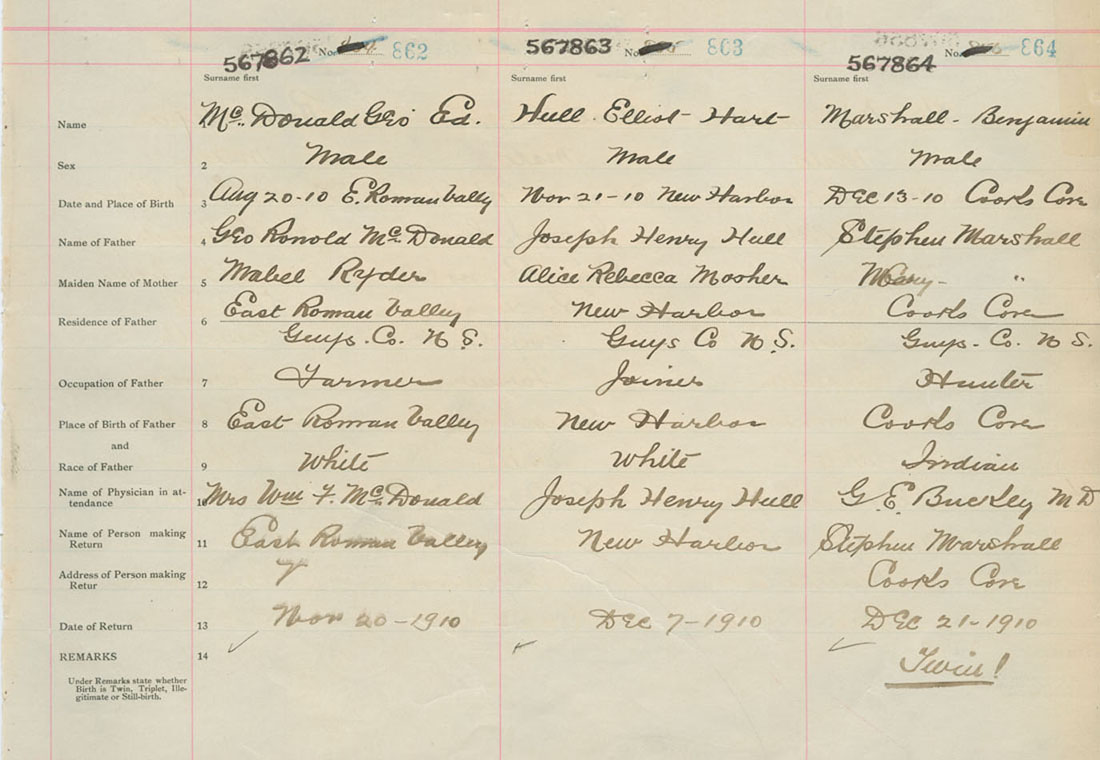 567862 No. 862 567863 No. 863 567864 No. 864
Surname first Surname first Surname first
Name Mc. Donald Geo Ed. Hull. Elliot Hart Marshall - Benjamin
Sex 2 Male Male Male
Date and Place of Birth 3 Aug 20-10 E. Roman Valley Nov 21-10 New Harbor DEC 13-10 Cooks Cove
Name of Father 4 Geo Ronold Mc. Donald Joseph Henry Hull Stephen Marshall
Maiden Name of Mother 5 Mabel Ryder Alice Rebecca Mosher Mary - "
Residence of Father 6 East Roman Valley New Harbor Cooks Cove
Guys. Co. N S. Guys Co N S. Guys. Co. N S.
Occupation of Father 7 Farmer Joiner Hunter
Place of Birth of Father 8 East Roman Valley New Harbor Cooks Cove
and
Race of Father 9 White White Indian
Name of Physician in at-
tendance 10 Mrs Wm F. Mc. Donald Joseph Henry Hull G. E. Buckley M D
Name of Person making
Return 11 East Roman Valley New Harbor Stephen Marshall
Address of Person making
Retur 12 Cooks Cove
Date of Return 13 Nov 20-1910 DEC 7-1910 DEC 21-1910
REMARKS 14 Twin!
Under Remarks state whether
Birth is Twin, Triplet, Ille-
gitimate or Still-birth.